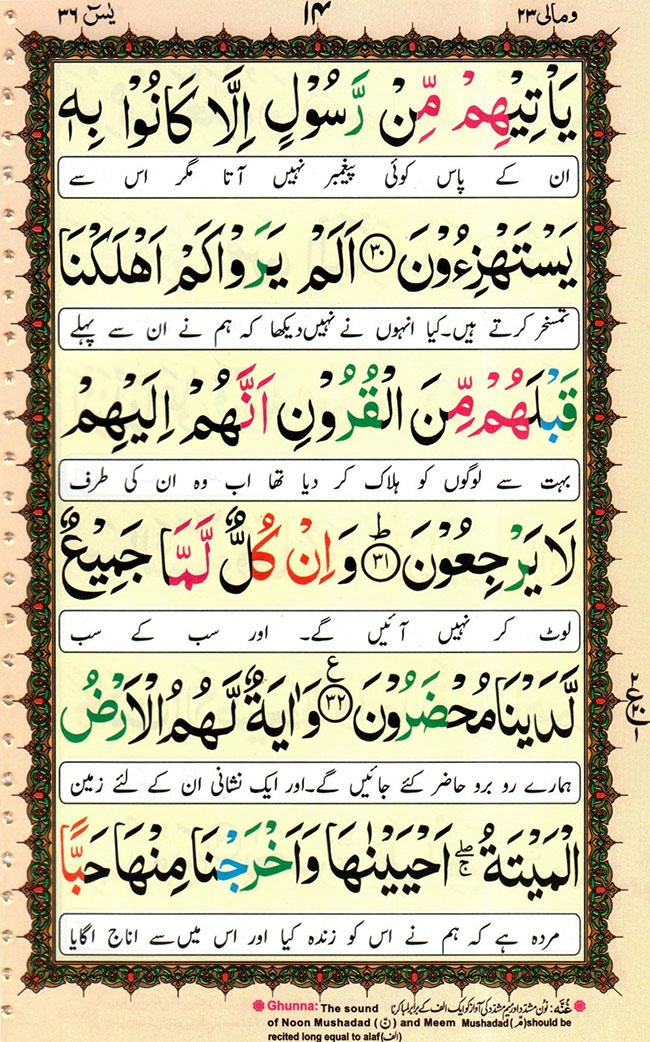 یٰسٓ ٣٦ ١٤ ومالی ٢٣
يَاۡتِيۡهِمۡ مِّنۡ رَّسُوۡلٍ اِلَّا كَانُوۡا بِهٖ
ان کے پاس کوئی پیغمبر نہیں آتا مگر اس سے
يَسۡتَهۡزِءُوۡنَ ﴿٣٠﴾ اَلَمۡ يَرَوۡا كَمۡ اَهۡلَكۡنَا
تمسخر کرتے ہیں۔کیا انہوں نے نہیں دیکھا کہ ہم نے ان سے پہلے
قَبۡلَهُمۡ مِّنَ الۡقُرُوۡنِ اَنَّهُمۡ اِلَيۡهِمۡ
بہت سے لوگوں کو ہلاک کر دیا تھا اب وہ ان کی طرف
لَا يَرۡجِعُوۡنَ ؕ ﴿٣١﴾ وَ اِنۡ كُلٌّ لَّمَّا جَمِيۡعٌ
لوٹ کر نہیں آئیں گے۔ اور سب کے سب
لَّدَيۡنَا مُحۡضَرُوۡنَ ﴿٣٢﴾ ع وَاٰيَةٌ لَّهُمُ الۡاَرۡضُ
ہمارے رو برو حاضر کئے جائیں گے۔اور ایک نشانی ان کے لئے زمین
الۡمَيۡتَةُ ۖۚ اَحۡيَيۡنٰهَا وَاَخۡرَجۡنَا مِنۡهَا حَبًّا
مردہ ہے کہ ہم نے اس کو زندہ کیا اور اس میں سے اناج اگایا
غُنَّہ: نون مشدّد اور میم مشدّد کی آواز کو ایک الف کے برابر لمبا کرنا
Ghunna: The sound
of Noon Mushadad (نّ) and Meem Mushadad (مّ) should be
recited long equal to alaf (الف)